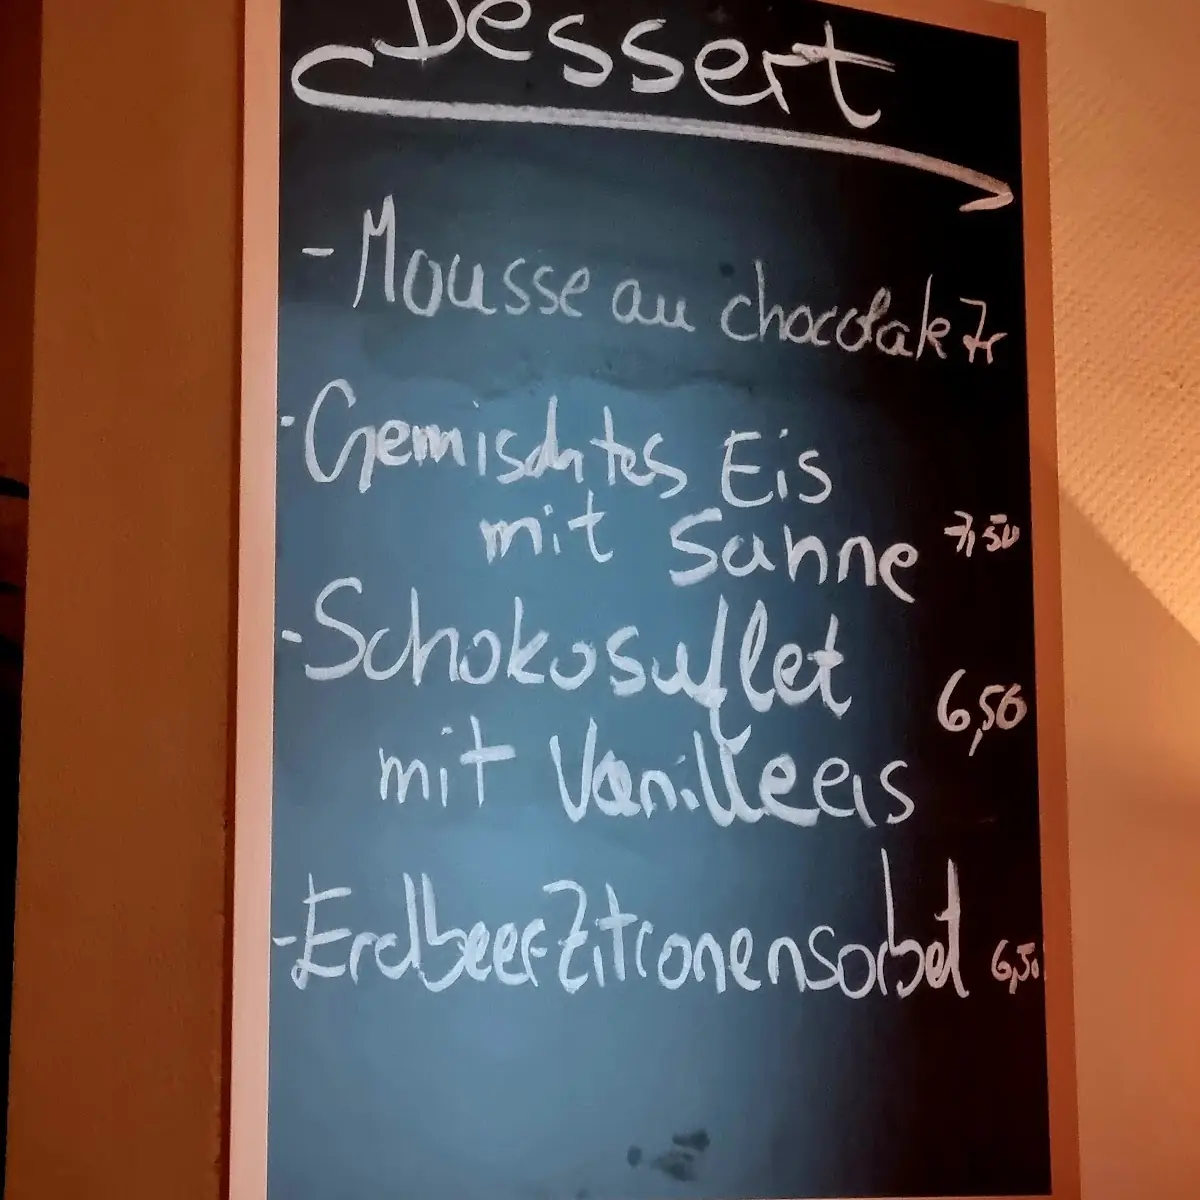 Dessert
- Mousse au chocolak 7,-
- Gemischtes Eis
mit Sahne 7,50
- Schokosuflet 6,50
mit Vanilleeis
- Erdbeer Zitronensorbet 6,50